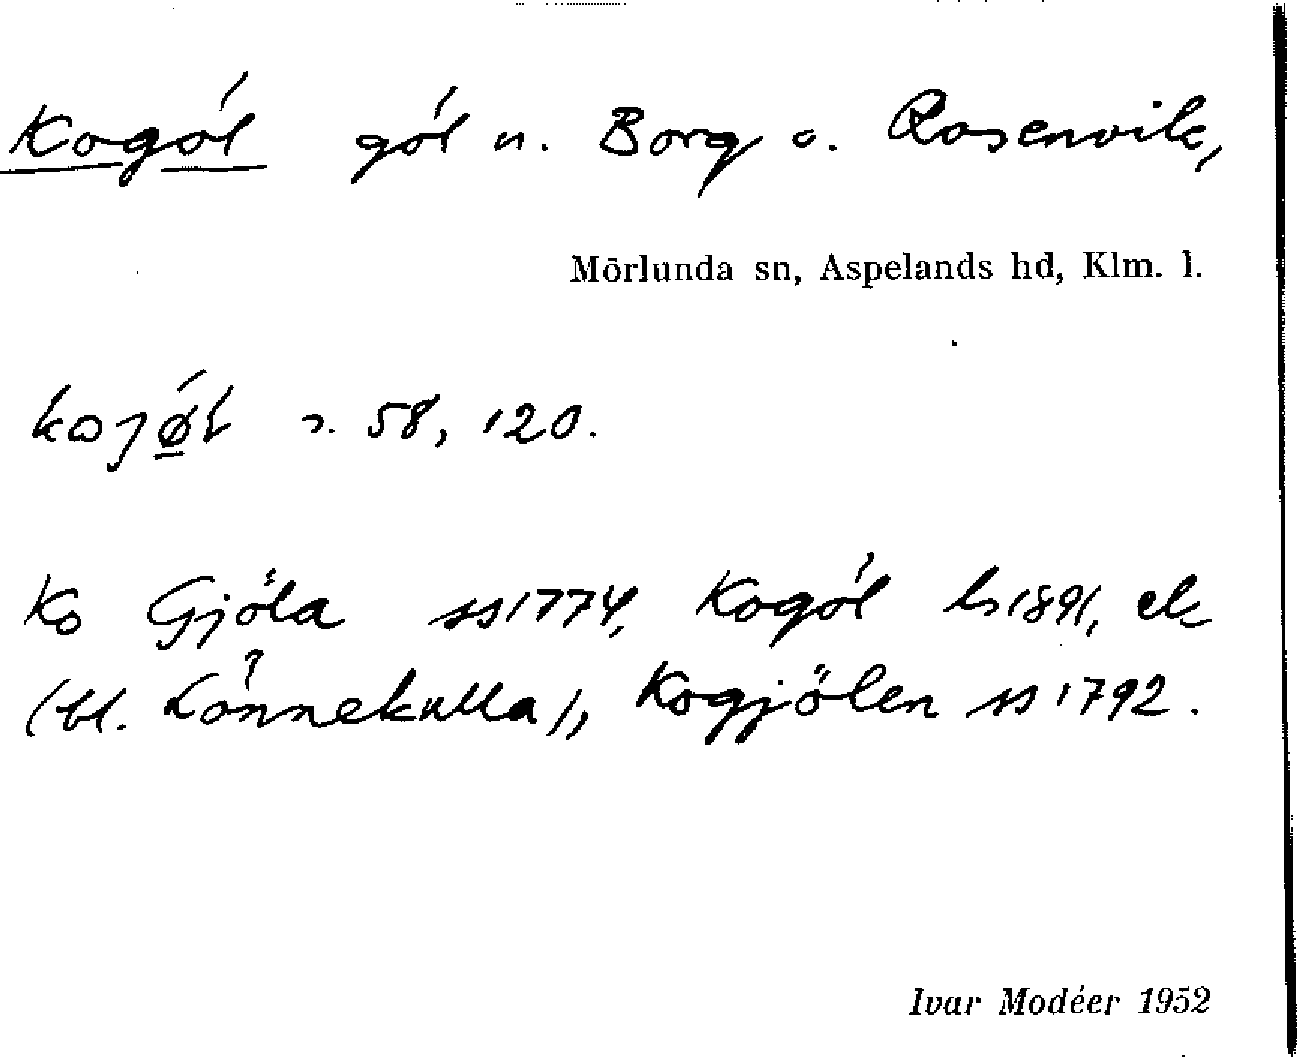 Kogöl göl n. Borg o. Rosenvik,
Mörlunda sn, Aspelands hd, Klm. l.
58, 120.
Ko Gjöla ss 1774, Kogöl ls 1891, ek
(bl. Lönnekulla), Kogjölen ss 1792.
Ivar Modéer 1952